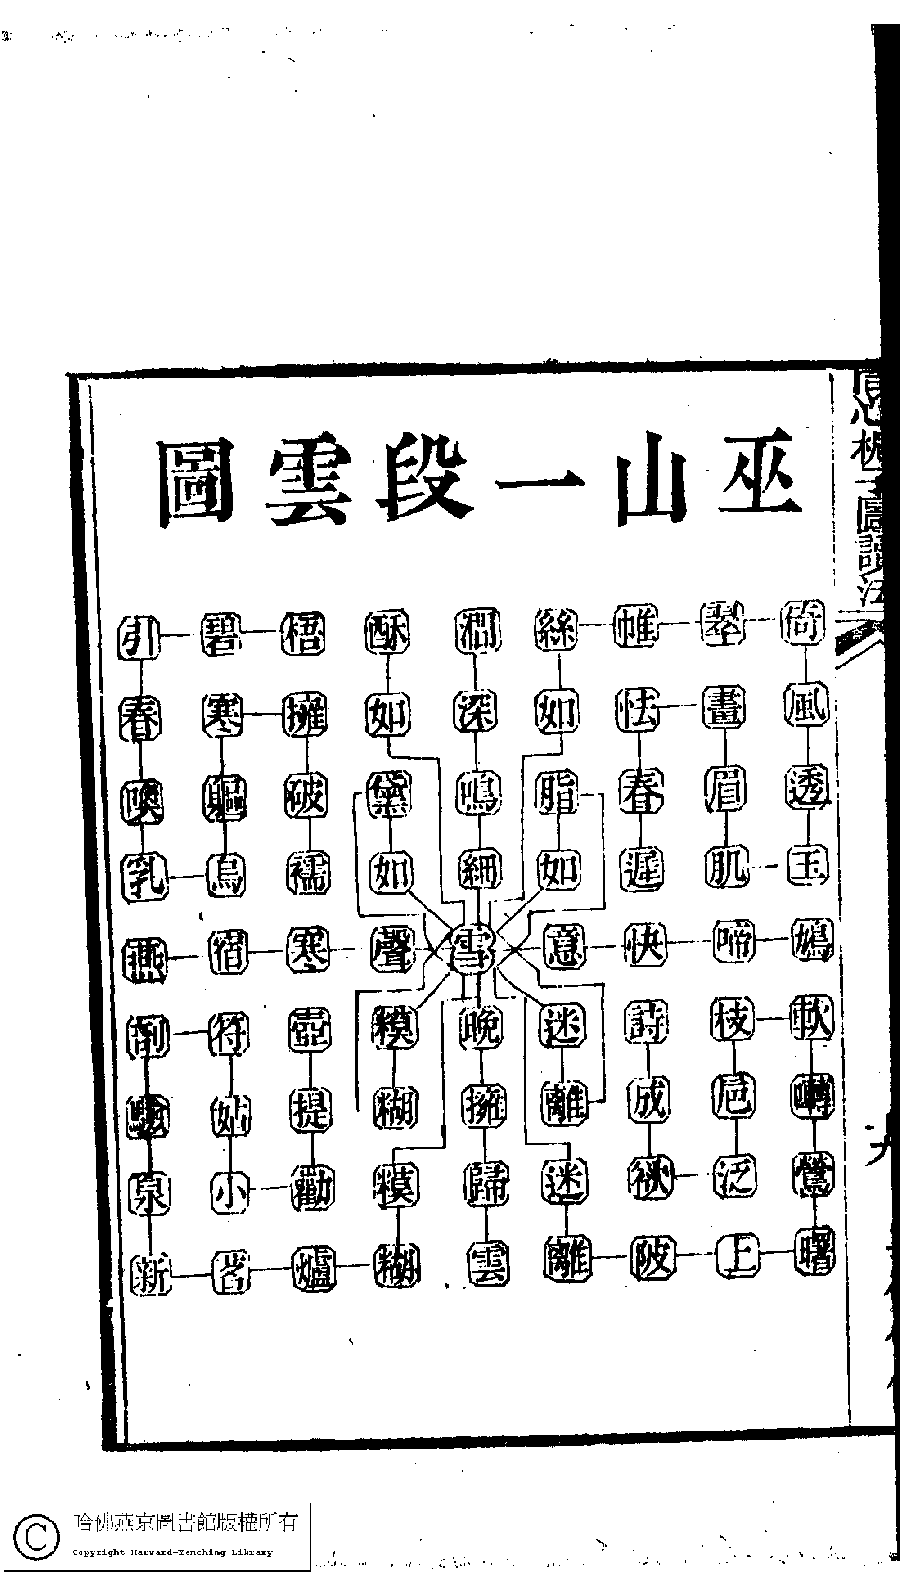 巫山一段雲圖
倚翠帷絲潤酥梧碧引
風畫怯如深如擁寒春
透眉春脂鳴黛破軀喚
玉肌遲如細如襦烏乳
鳩啼快意雪聲寒宿燕
軟枝詩迷晚模壺符
囀卮成離擁糊提姑
鶯泛迷歸模勸小泉
曙上陂離雲糊爐省新
圖讀法
哈佛燕京圖書館版權所有
Copyright Harvard-Yenching Library